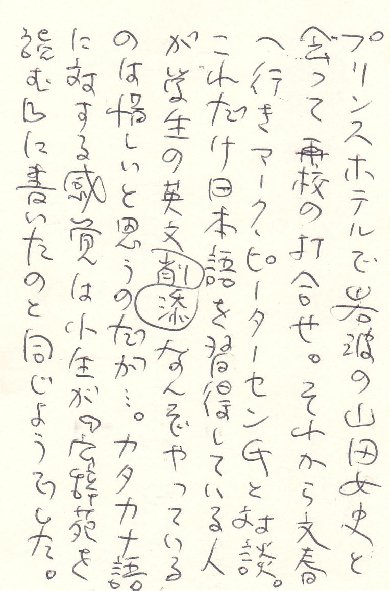 プリンスホテルで岩波の山田女史と
会って再校の打合せ。それから文春
へ行きマーク・ピーターセン氏と対談。
これだけ日本語を習得している人
が学生の英文削添なんぞやっている
のは惜しいと思うのだが…。カタカナ語
に対する感覚は小生が『広辞苑を
読む』に書いたのと同じようでした。